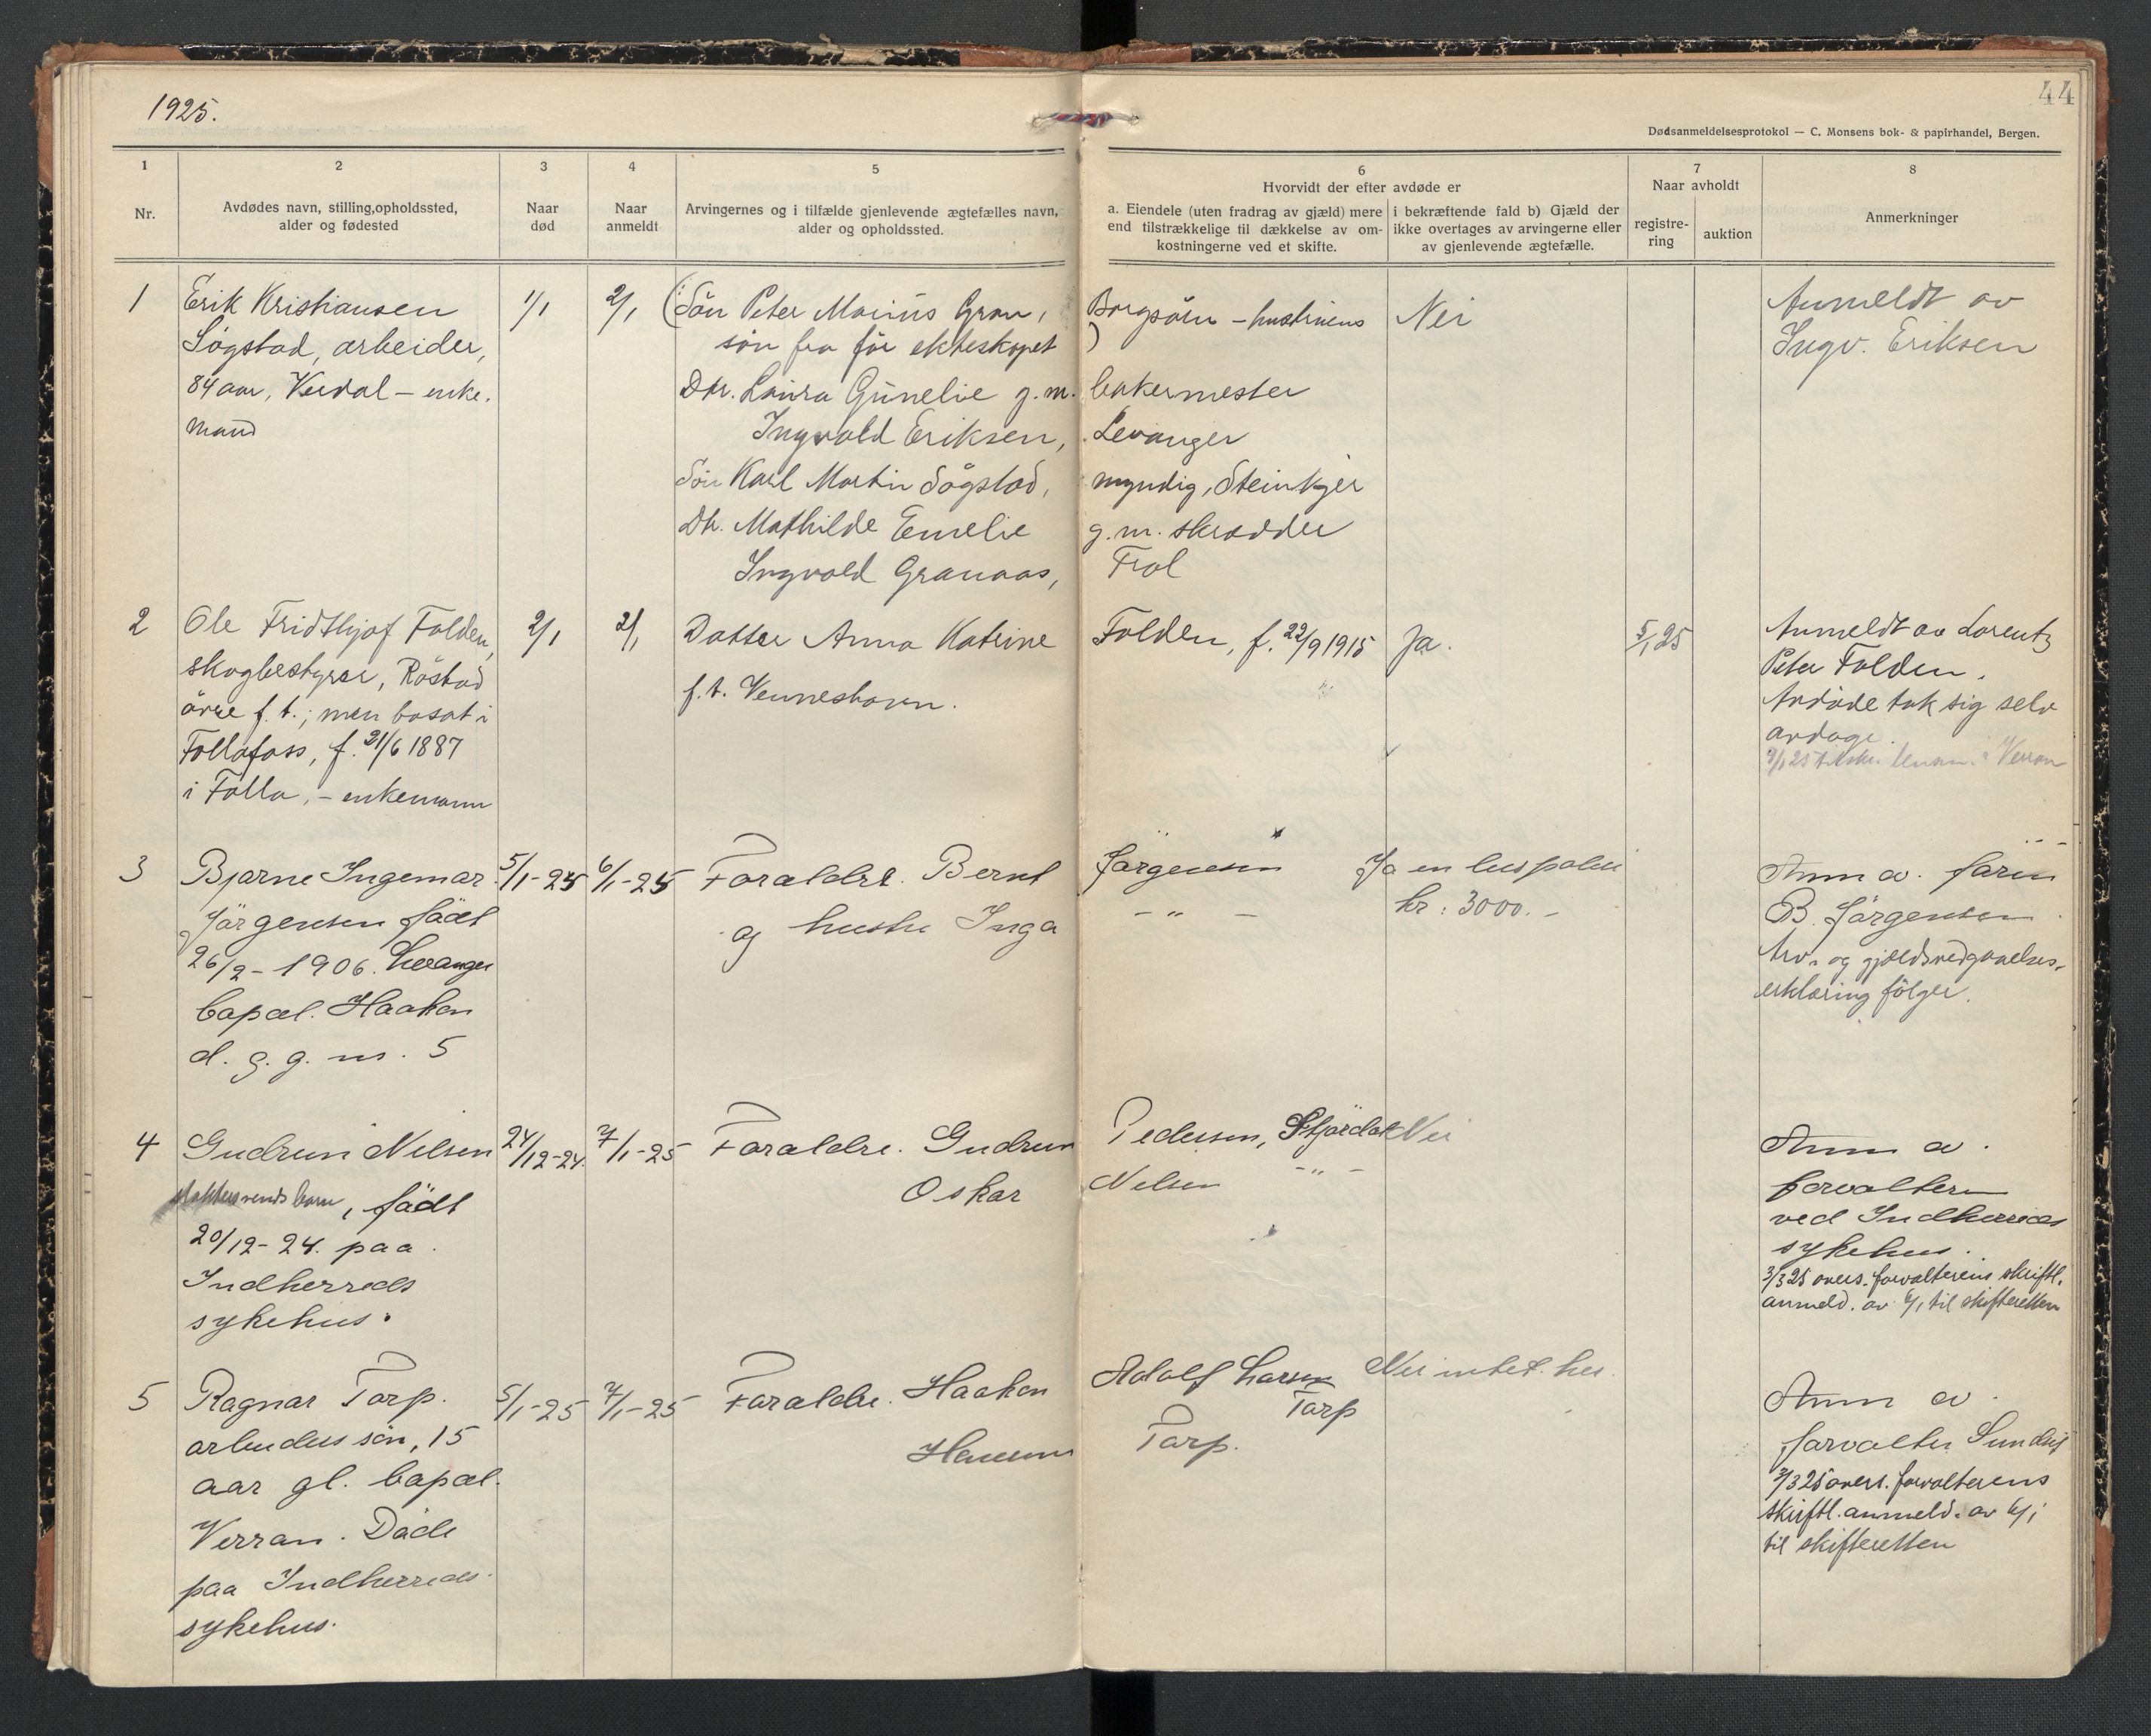 1925.
44
Dødsanmeldelsesprotokol — C. Monsens bok- & papirhandel, Bergen.
1
2
3
4
5
6
7
8
Nr.
Avdødes navn, stilling, opholdssted,
alder og fødested
Naar
død
Naar
anmeldt
Arvingernes og i tilfælde gjenlevende ægtefælles navn,
alder og opholdssted.
Hvorvidt der efter avdøde er
a. Eiendele (uten fradrag av gjæld) mere
end tilstrækkelige til dækkelse av om-
kostningerne ved et skifte.
i bekræftende fald b) Gjæld der
ikke overtages av arvingerne eller
av gjenlevende ægtefælle.
Naar avholdt
registre-
ring
auktion
Anmerkninger
1
Erik Kristiansen
Søgstad, arbeider,
84 aar, Verdal – enke.
mand
1/1
2/1
(: Søn Peter Marius Gran, Borgsörn – hustruens
søn fra før ekteskapet )
Dtr. Laura Gunelie g.m. bakermester
Ingvald Eriksen, Levanger
Søn Karl Martin Søgstad, myndig, Steinkjer
Dtr. Mathilde Emelie g.m. skrædder
Ingvald Granaas, Frol
Nei
Anmeldt av
Ingv. Eriksen
2
Ole Fridthjof Folden,
skogbestyrer, Röstad
övre f. t.; men bosat i
Follafoss, f. 21/6 1887
i Folla, – enkemann
2/1
2/1
Datter Anna Katrine Folden, f. 22/9 1915
f. t. Venneshavn.
Ja.
5/1 25
Anmeldt av Lorentz
Peter Folden.
Avdøde tok sig selv
avdage.
Verran
3
Bjarne Ingemar
Jörgensen födt
26/2 – 1906. Levanger
bopæl. Haakon
d. g. g. nr. 5
5/1-25
6/1-25
Foraldre. Bernt Jørgensen
og hustru Inga – " –
Ja en
kr: 3000. –
Anm av. faren
B. Jørgensen
Arv- og gjældsvedgaaelses-
erklæring følger.
4
Gudrun Nilsen
barn, födt
20/12- 24. paa
Indherreds
sykehus.
24/12-24.
7/1-25
Foraldre. Gudrun Pedersen, Stjørdal
Oskar Nelsen – " –
Nei
Anm av.
forvalteren
ved Indherreds
sykehus.
3/3 25 overs. forvalterens skriftl.
anmeld. av 6/1 til skifteretten
5
Ragnar Torp.
arbeiders søn, 15
aar gl. bopæl.
Verran. Døde
paa Indherreds
sykehus.
5/1-25
7/1-25
Foraldre. Haakon Adolf Larsen
Torp
Torp.
Nei intet.
Anm av.
forvalter
3/3 25 overs. forvalterens
skriftl. anmeld. av 6/1
til skifteretten